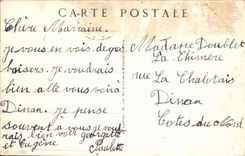 CARTE POSTALE
Chère Marraine
je vous en vois de gros
baisers. je voudrais
bien allé vous voir à
Dinan. je pense
souvent a vous je voud
rais bien voir
et Eugène
Paulette
Madame Doublet
La Chimère
rue La Chalotais
Dinan
Cotes du Nord